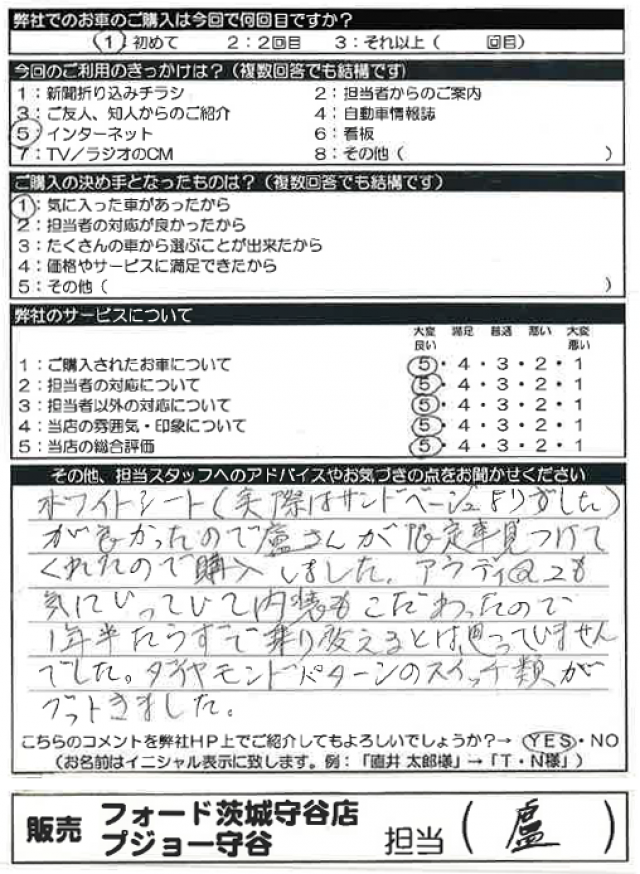 弊社でのお車のご購入は今回で何回目ですか？
1：初めて　2：2回目　3：それ以上（　回目）
今回のご利用のきっかけは？（複数回答でも結構です）
1：新聞折り込みチラシ　2：担当者からのご案内
3：ご友人、知人からのご紹介　4：自動車情報誌
5：インターネット　6：看板
7：TV／ラジオのCM　8：その他（　）
ご購入の決め手となったものは？（複数回答でも結構です）
1：気に入った車があったから
2：担当者の対応が良かったから
3：たくさんの車から選ぶことが出来たから
4：価格やサービスに満足できたから
5：その他（　）
弊社のサービスについて
大変良い　満足　普通　悪い　大変悪い
1：ご購入されたお車について　5・4・3・2・1
2：担当者の対応について　5・4・3・2・1
3：担当者以外の対応について　5・4・3・2・1
4：当店の雰囲気・印象について　5・4・3・2・1
5：当店の総合評価　5・4・3・2・1
その他、担当スタッフへのアドバイスやお気づきの点をお聞かせください
ホワイトシート（実際はサンドベージュよりでした）
が良かったので盧さんが限定車見つけて
くれたので購入しました。アウディQ2も
気にいっていて内装もこだわったので
1年半たらずで乗り変えるとは思っていません
でした。ダイヤモンドパターンのスイッチ類が
グットきました。
こちらのコメントを弊社HP上でご紹介してもよろしいでしょうか？→ YES・NO
（お名前はイニシャル表示に致します。例：「直井 太郎様」→「T・N様」）
販売　フォード茨城守谷店
プジョー守谷　担当（盧）